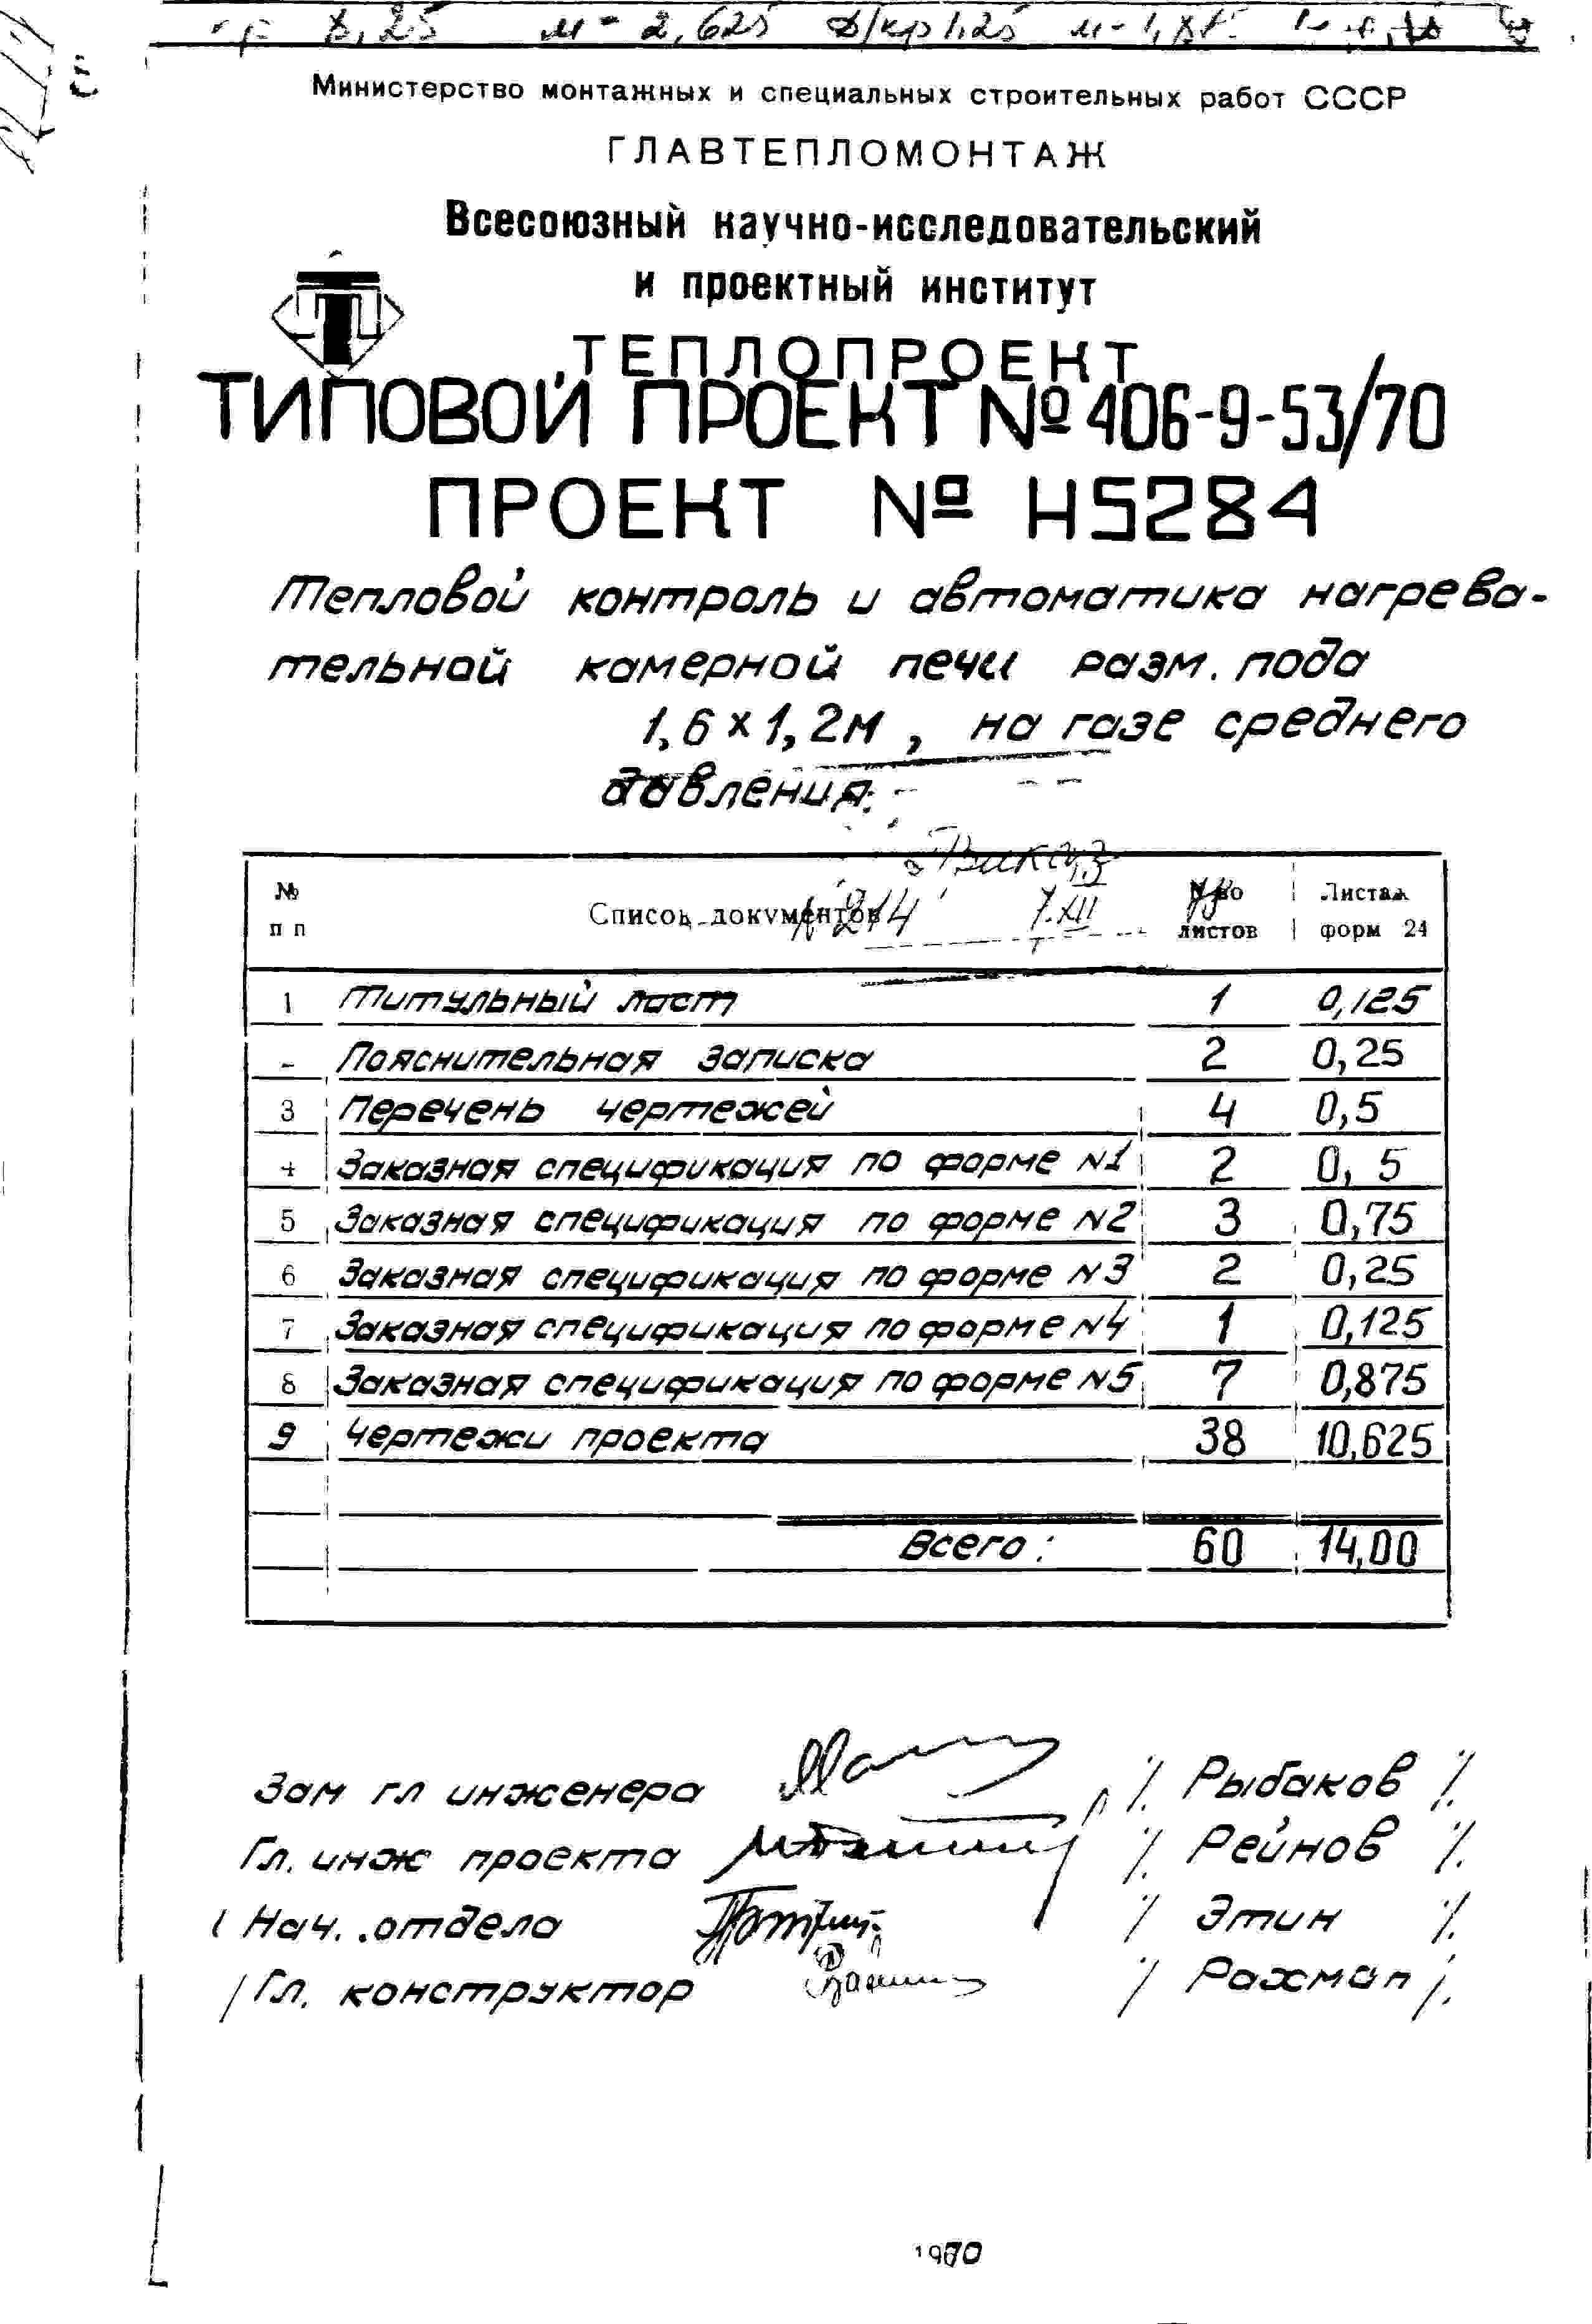 8,25 м- 2,625 1,25
Министерство монтажных и специальных строительных работ СССР
ГЛАВТЕПЛОМОНТАЖ
Всесоюзный научно-исследовательский
и проектный институт
ТЕПЛОПРОЕКТ
ТИПОВОЙ ПРОЕКТ № 406-9-53/70
ПРОЕКТ № Н5284
Тепловой контроль и автоматика нагрева-
тельной камерной печи разм. пода
1,6 х 1,2м, на газе среднего
давления.
№ п п Список документов К-во листов Листаж форм 24
1 Титульный лист 1 0,125
- Пояснительная записка 2 0,25
3 Перечень чертежей 4 0,5
4 Заказная спецификация по форме N1 2 0,5
5 Заказная спецификация по форме N2 3 0,75
6 Заказная спецификация по форме N3 2 0,25
7 Заказная спецификация по форме N4 1 0,125
8 Заказная спецификация по форме N5 7 0,875
9 Чертежи проекта 38 10,625
Всего: 60 14,00
Зам гл инженера /. Рыбаков /.
Гл. инж проекта /. Рейнов /.
Нач. отдела / Этин /.
Гл. конструктор / Рахман /.
1970